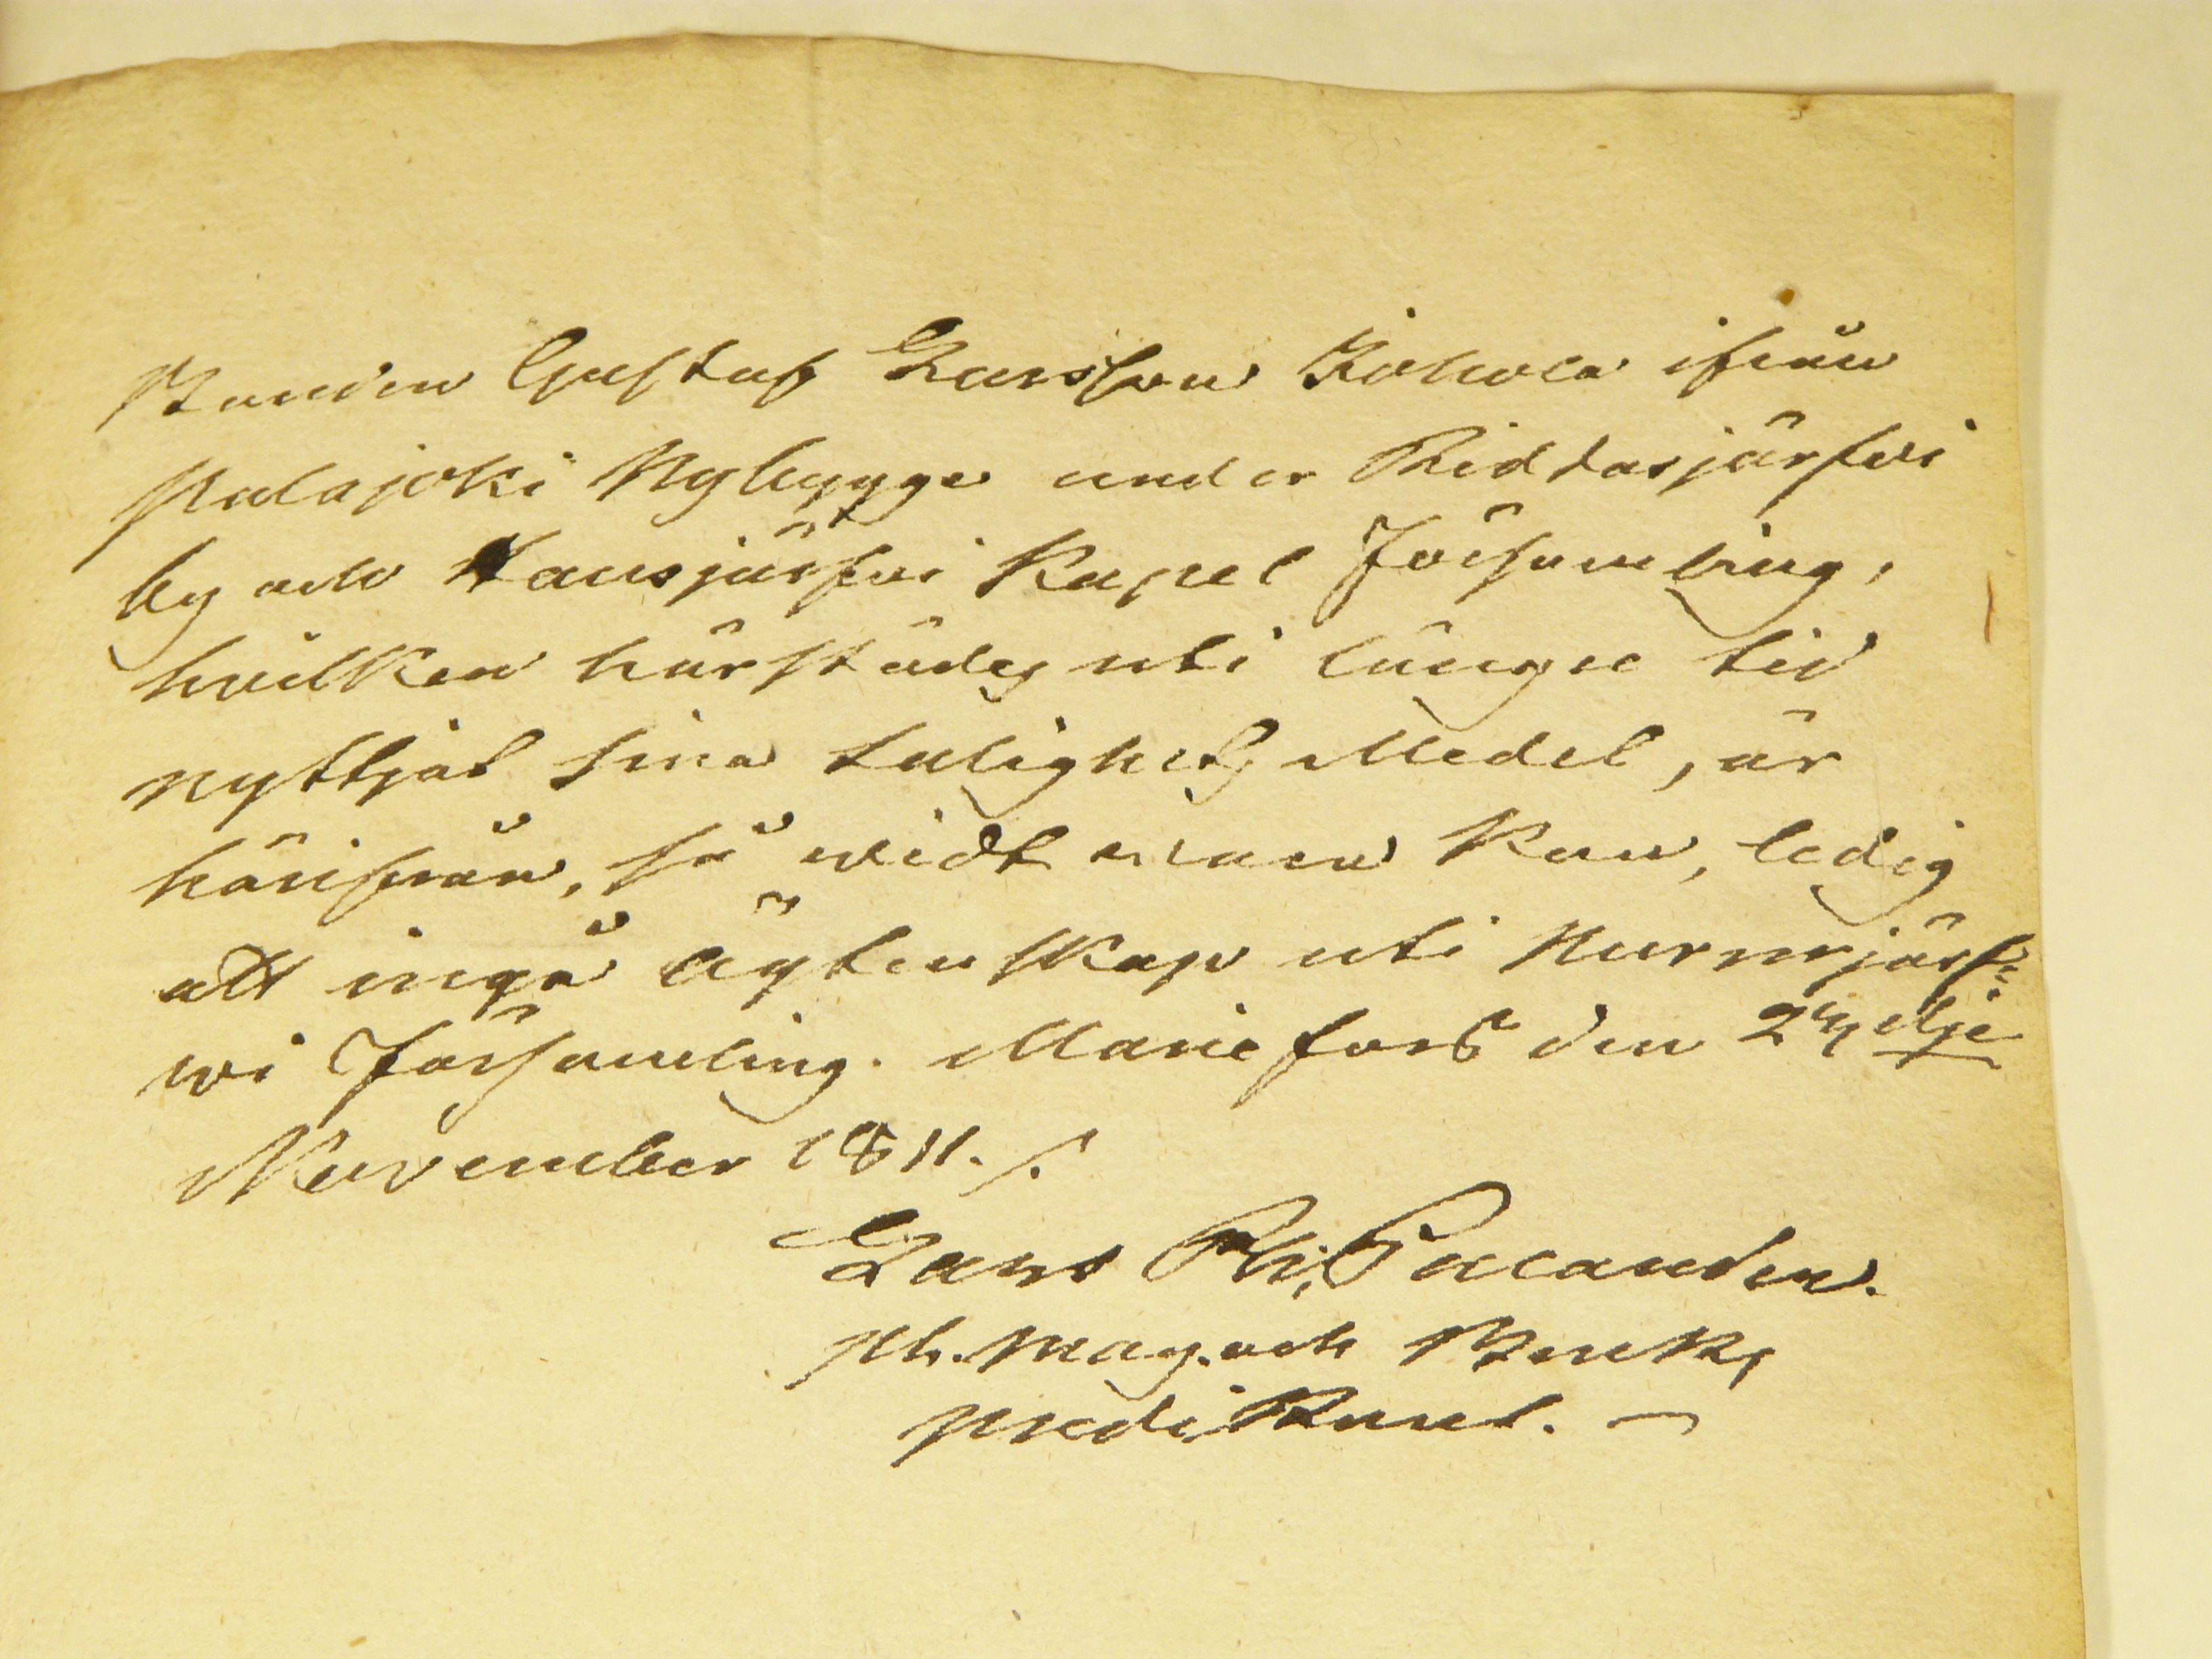 Bonden Gustaf Larsson Kohola ifrån
Palajoki Nybygge under Riddasjärfvi
by och Tansjärfvi Kapel Församling,
hvilken härstädes uti längre tid
nyttjat sina salighets Medel, är
härifrån, så widt man kan, ledig
att ingå ägtenskap uti Nurmijärf=
wi Församling. Mariefors den 24 dje
November 1811. /.
Lars Ph. Palander.
ph. mag. och Bruks
predikant. –